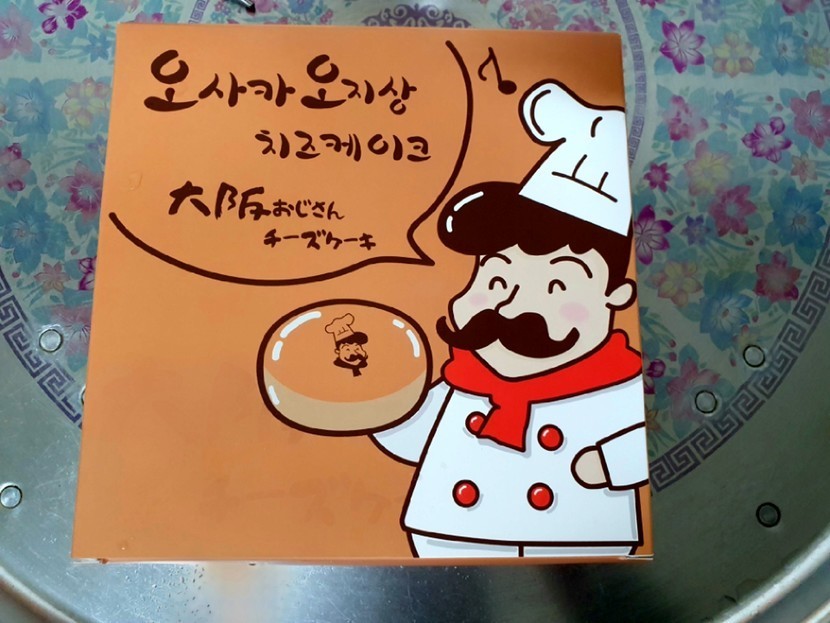 오사카 오지상
치즈케이크
大阪おじさん
チーズケーキ